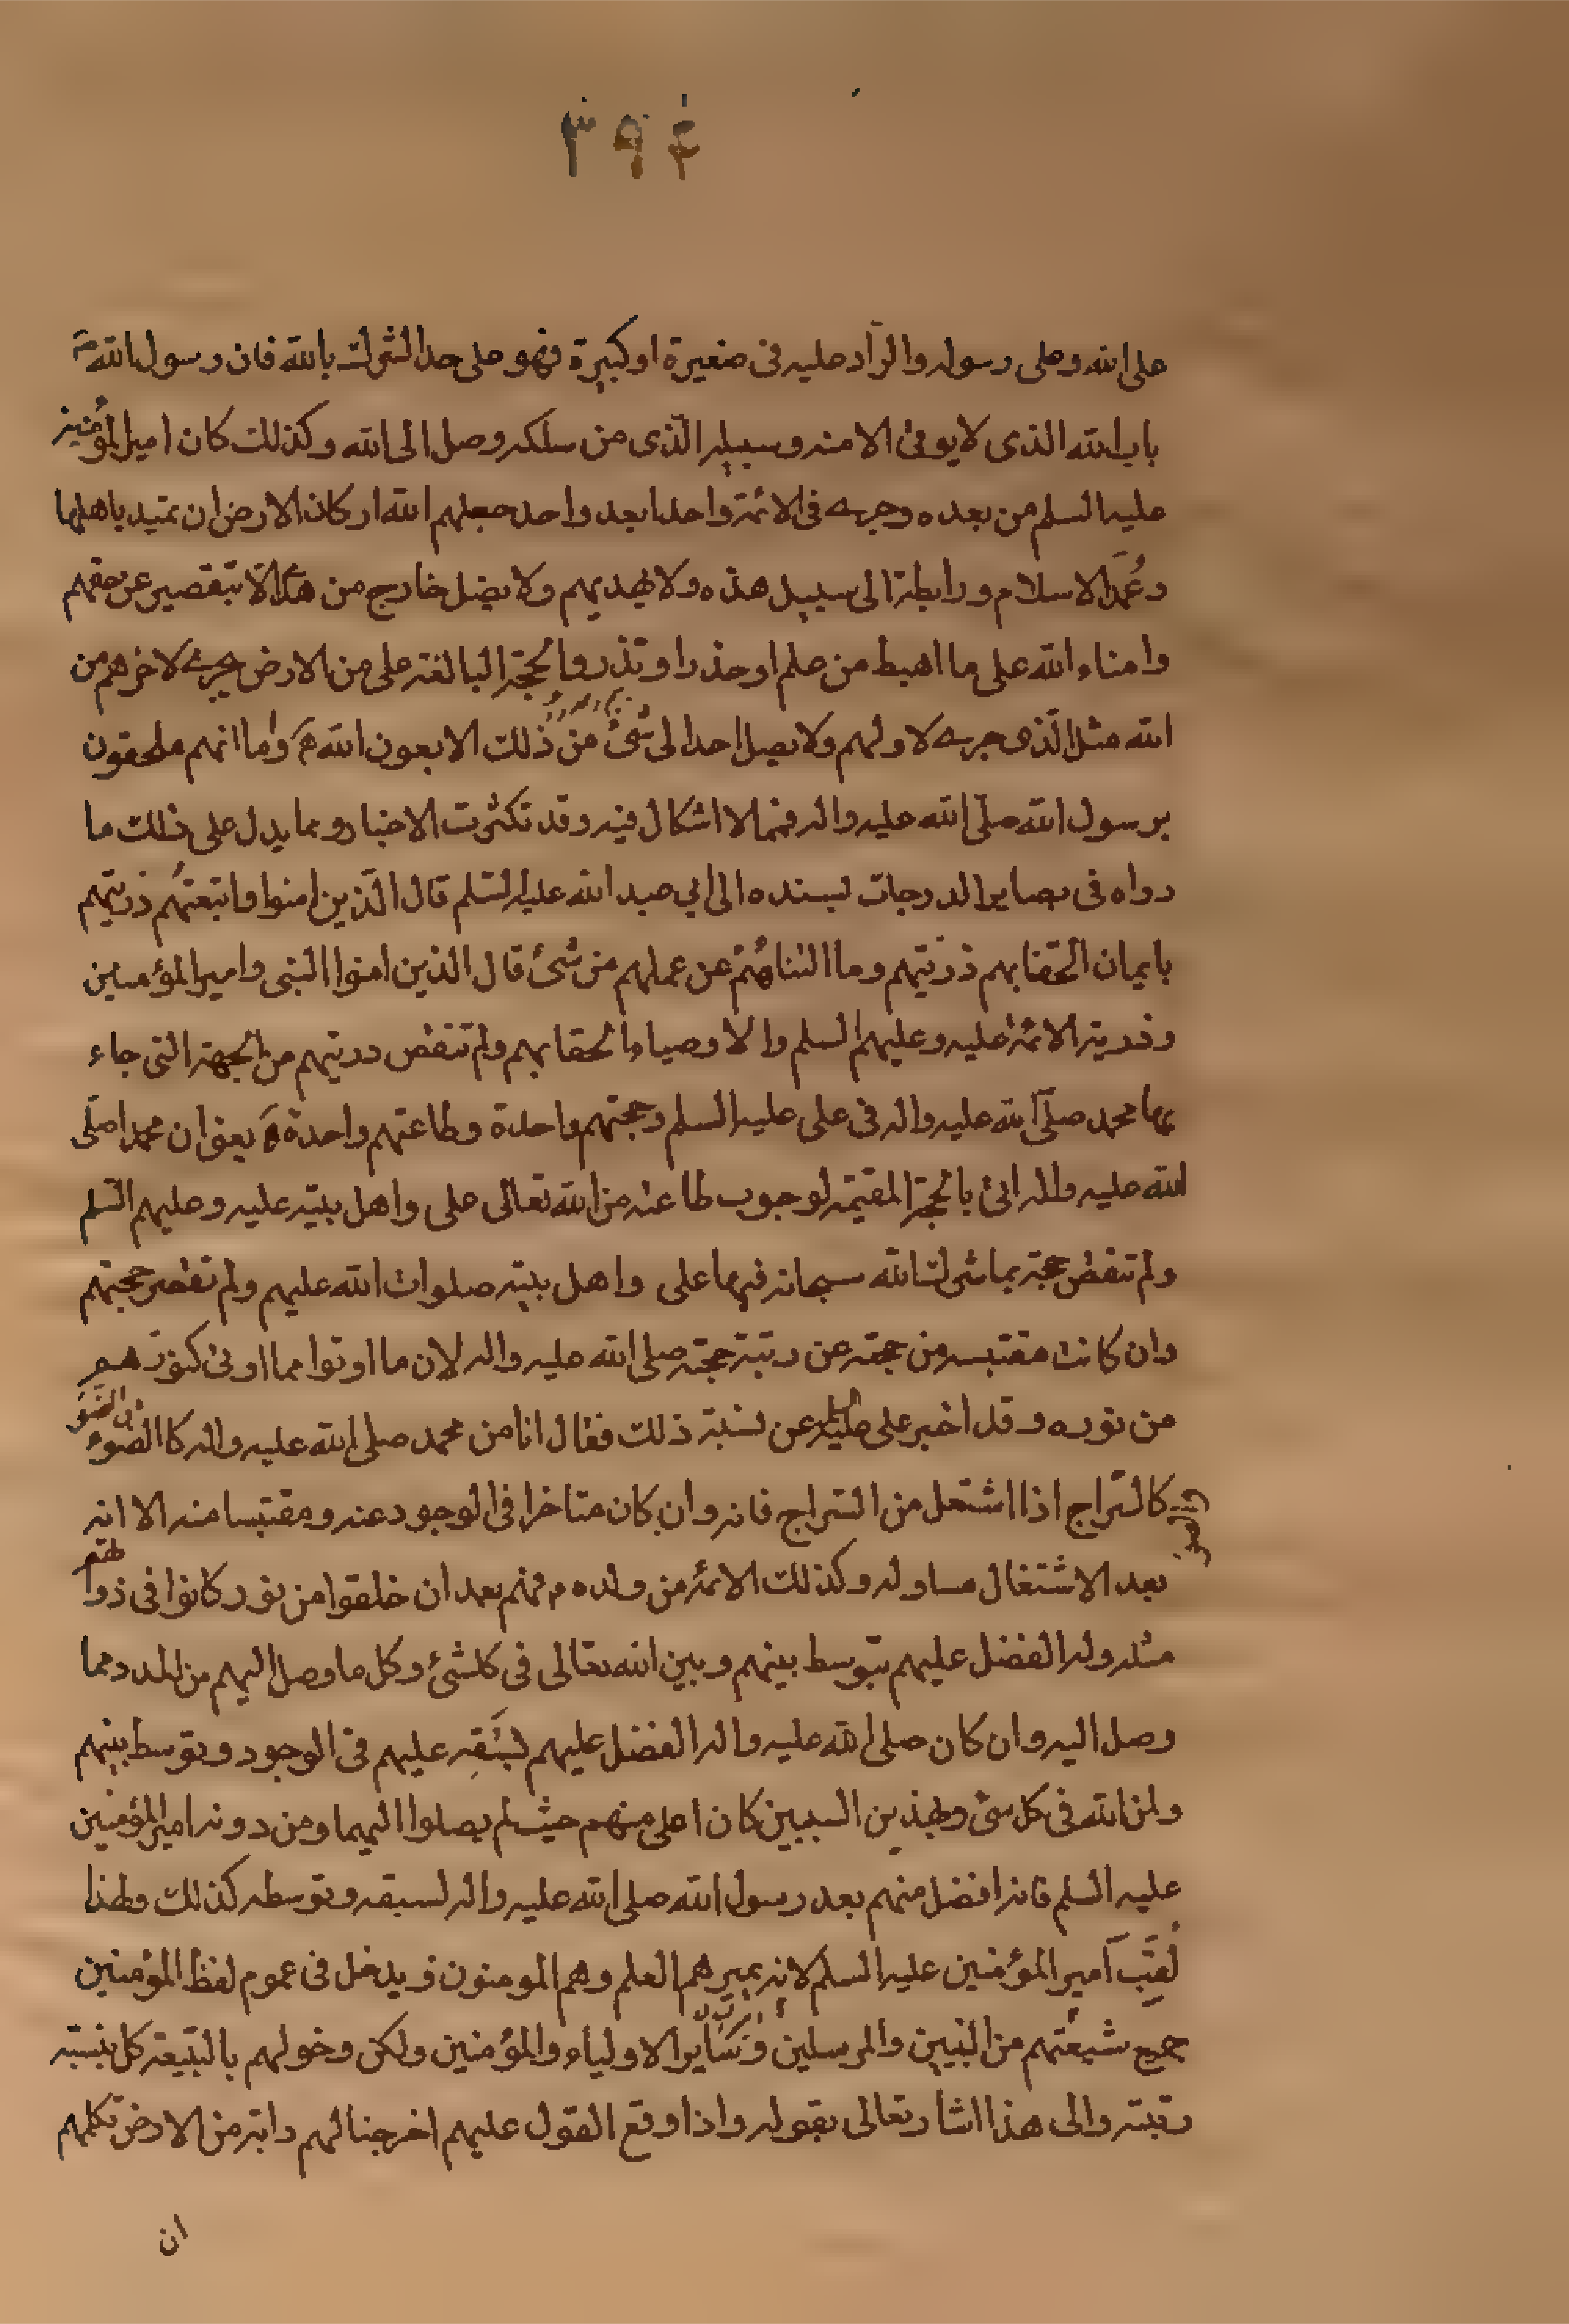 ٣٩٤
على الله وعلى رسوله والرآد عليه فى صغيرة او كبيرة فهو على حد الشرك بالله فان رسول الله ص
باب الله الذى لا يوتى الا منه وسبيله الّذى من سلكه وصل الى الله وكذلك كان امير المؤمنين
عليه السلم من بعده وجرى فى الائمة واحدا بعد واحد جعلهم الله اركان الارض ان تميد باهلها
وعُمَد الاسلام ورابطة الى سبيل هذه ولا يهديهم ولا يضل خارج من هدا الّا بتقصير عن حقهم
وامناء الله على ما اهبط من علم او عذر او نذر والحجة البالغة على من الارض يجرى لاخرهم من
الله مثل الّذى جرى لاولهم ولا يصل احد الى شئ من ذلك الا بعون الله هـ واما انهم ملحقون
برسول الله صلّى الله عليه واله فمما لا اشكال فيه وقد تكثرت الاخبار ومما يدل على ذلك ما
رواه فى بصاير الدرجات بسنده الى ابي عبد الله عليه السّلم قال الّذين امنوا واتبعتهُم ذريتهم
بايمان الحقنا بهم ذريتهم وما التناهُم من عملهم من شئ قال الذين امنوا النبى وامير المؤمنين
وذرية الائمة عليه وعليهم السلم والاوصياء الحقنا بهم ولم تنقض ذريتهم من الجهة التى جاء
بها محمد صلّى الله عليه واله فى على عليه السلم وحجتهم واحدة وطاعتهم واحدة هـ يعنى ان محمدا صلّى
الله عليه واله اتى بالحجة المقيمة لوجوب طاعته من الله تعالى على واهل بيته عليه وعليهم السّلم
ولم تنقض حجته بما شرك الله سبحانه فيها على واهل بيته صلوات الله عليهم ولم تنقض حجتهم
وان كانت مقتبسه من حجته عن رتبة حجته صلى الله عليه واله لان ما اوتوا مما اوتى كنورهم
من نوره وقد اخبر على عليه السلم عن نسبة ذلك فقال انا من محمد صلى الله عليه واله كالضوء من الضوء
كالسّراج اذا اشتعل من السّراج فانه وان كان متاخرا فى الوجود عنه ومقتبسا منه الا انه
بعد الاشتغال مساو له وكذلك الائمة من ولده م فهم بعد ان خلقوا من نور كانوا فى ذواتهم
مثله وله الفضل عليهم بتوسط بينهم وبين الله تعالى فى كلشئ وكل ما وصل اليهم من المدد مما
وصل اليه وان كان صلى الله عليه واله الفضل عليهم لسَبْقِه عليهم فى الوجود وتوسط بينهم
وبين الله فى كل شئ وبهذين السببين كان اعلى منهم حيث لم يصلوا اليهما ومن دونه امير المؤمنين
عليه السلم فانه افضل منهم بعد رسول الله صلى الله عليه واله لسبقه وتوسطه كذلك ولهذا
لُقِّبَ امير المؤمنين عليه السلم لانه يميرهم العلم وهم المومنون ويدخل فى عموم لفظ المؤمنين
جميع شيعتهم من النبيين والمرسلين وسَاير الاولياء والمؤمنين ولكن دخولهم بالتبيعة كل بنسبة
رتبته والى هذا اشار تعالى بقوله واذا وقع القول عليهم اخرجنا لهم دابة من الارض تكلمهم
ان